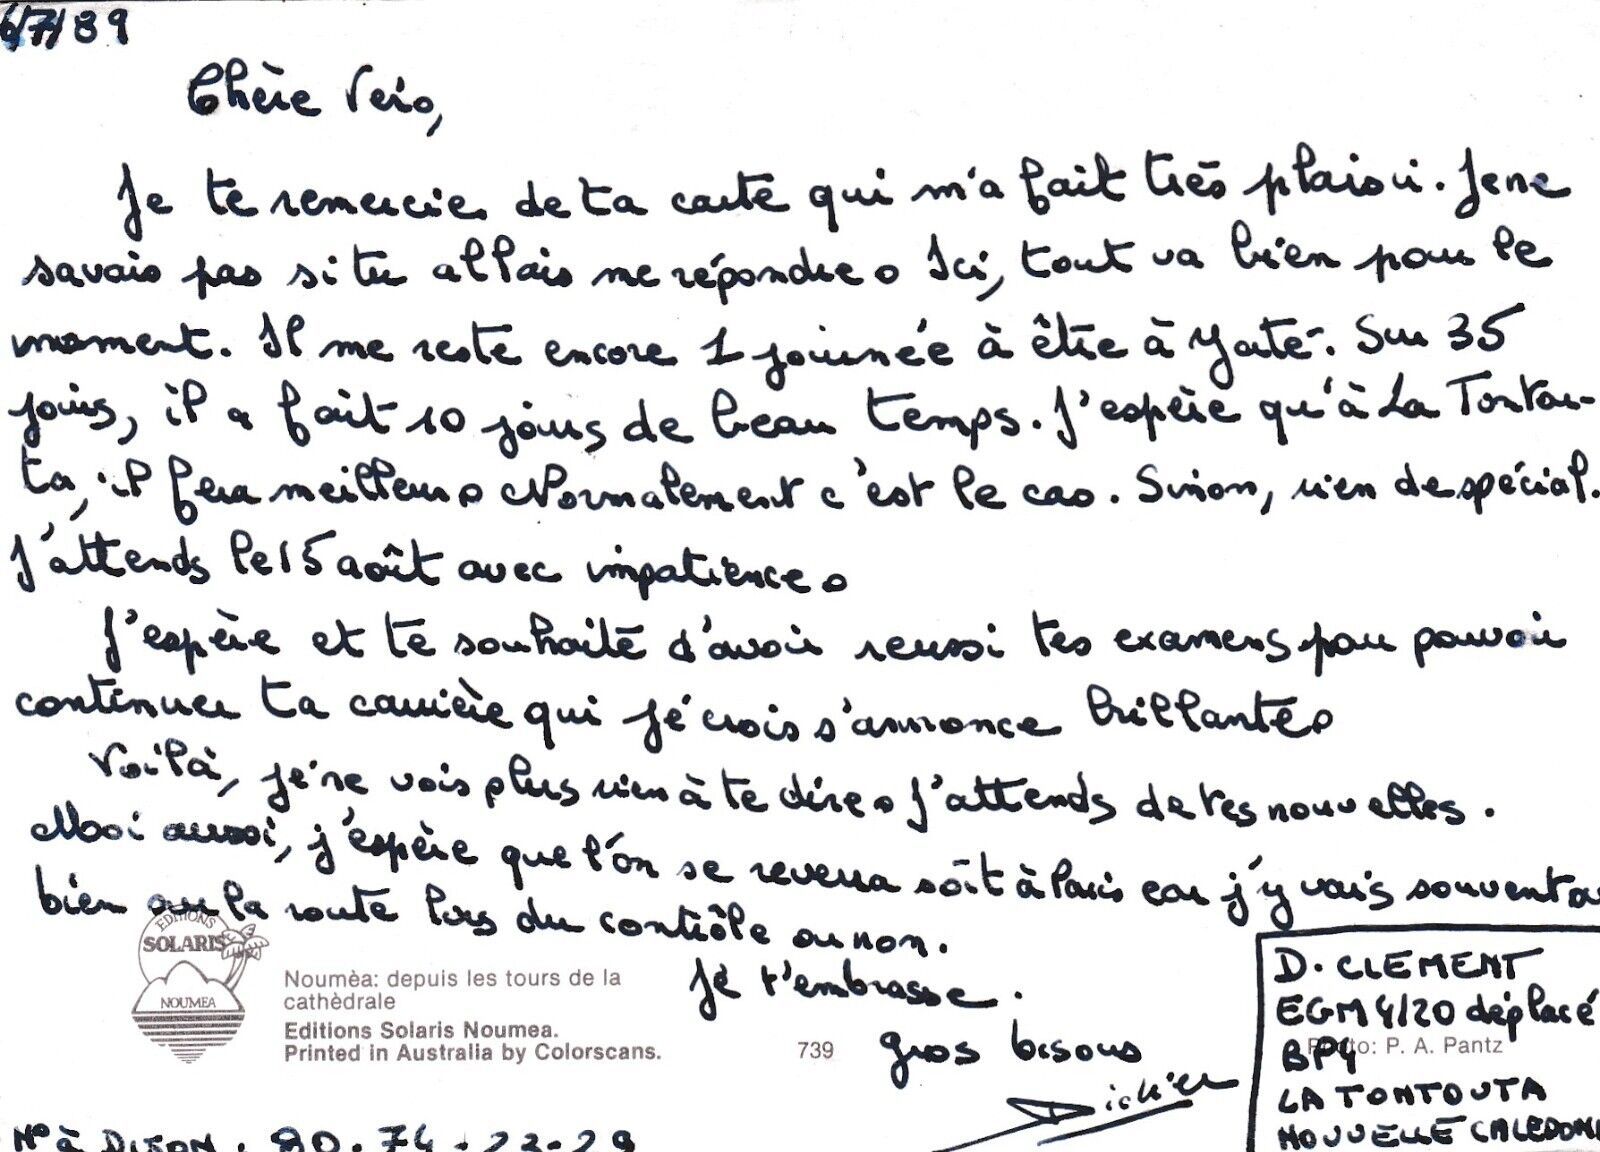 6/7/89
Chère Vero,
Je te remercie de ta carte qui m'a fait très plaisir. Je ne
savais pas si tu allais me répondre. Ici, tout va bien pour le
moment. Il me reste encore 1 journée à être à Yaté. Sur 35
jours, il a fait 10 jours de beau temps. J'espère qu'à La Tontou-
ta, il fera meilleur. Normalement c'est le cas. Sinon, rien de spécial.
J'attends le 15 août avec impatience.
J'espère et te souhaite d'avoir reussi tes examens pour pouvoir
continuer ta carrière qui je crois s'annonce brillante.
Voilà, je ne vois plus rien à te dire. J'attends de tes nouvelles.
Moi aussi, j'espère que l'on se reverra soit à Paris car j'y vais souvent ou
bien sur la route lors du contrôle ou non.
Je t'embrasse.
gros bisous
Didier
EDITIONS
SOLARIS
NOUMEA
Noumèa: depuis les tours de la
cathèdrale
Editions Solaris Noumea.
Printed in Australia by Colorscans.
739
Photo: P. A. Pantz
D. CLEMENT
EGM 4/20 déplacé
BP4
LA TONTOUTA
NOUVELLE CALEDONI
N° à DIJON. 80.74.23.29